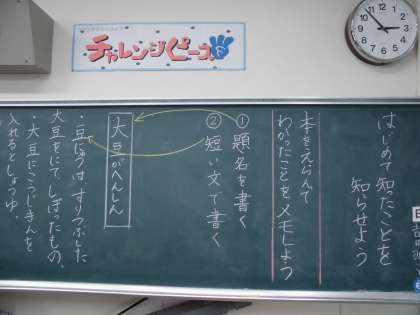 チャレンジピース
はじめて知ったことを
知らせよう
本をえらんで
わかったことをメモしよう
①題名を書く
②短い文で書く
大豆がへんしん
・豆にゅうは、すりつぶした
大豆をにて、しぼったもの。
・大豆にこうじきんを
入れるとしょうゆ。